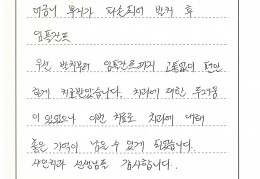 어금니 부지가 파손되어 발치 후
임플란트
우선 발치부터 임플란트까지 고통없이 편안
하게 치료받았습니다. 치과에 대한 두려움
이 있었으나 이번 치료로 치과에 대해
좋은 기억이 남을 수 있게 되었습니다.
샤인치과 선생님들 감사합니다.